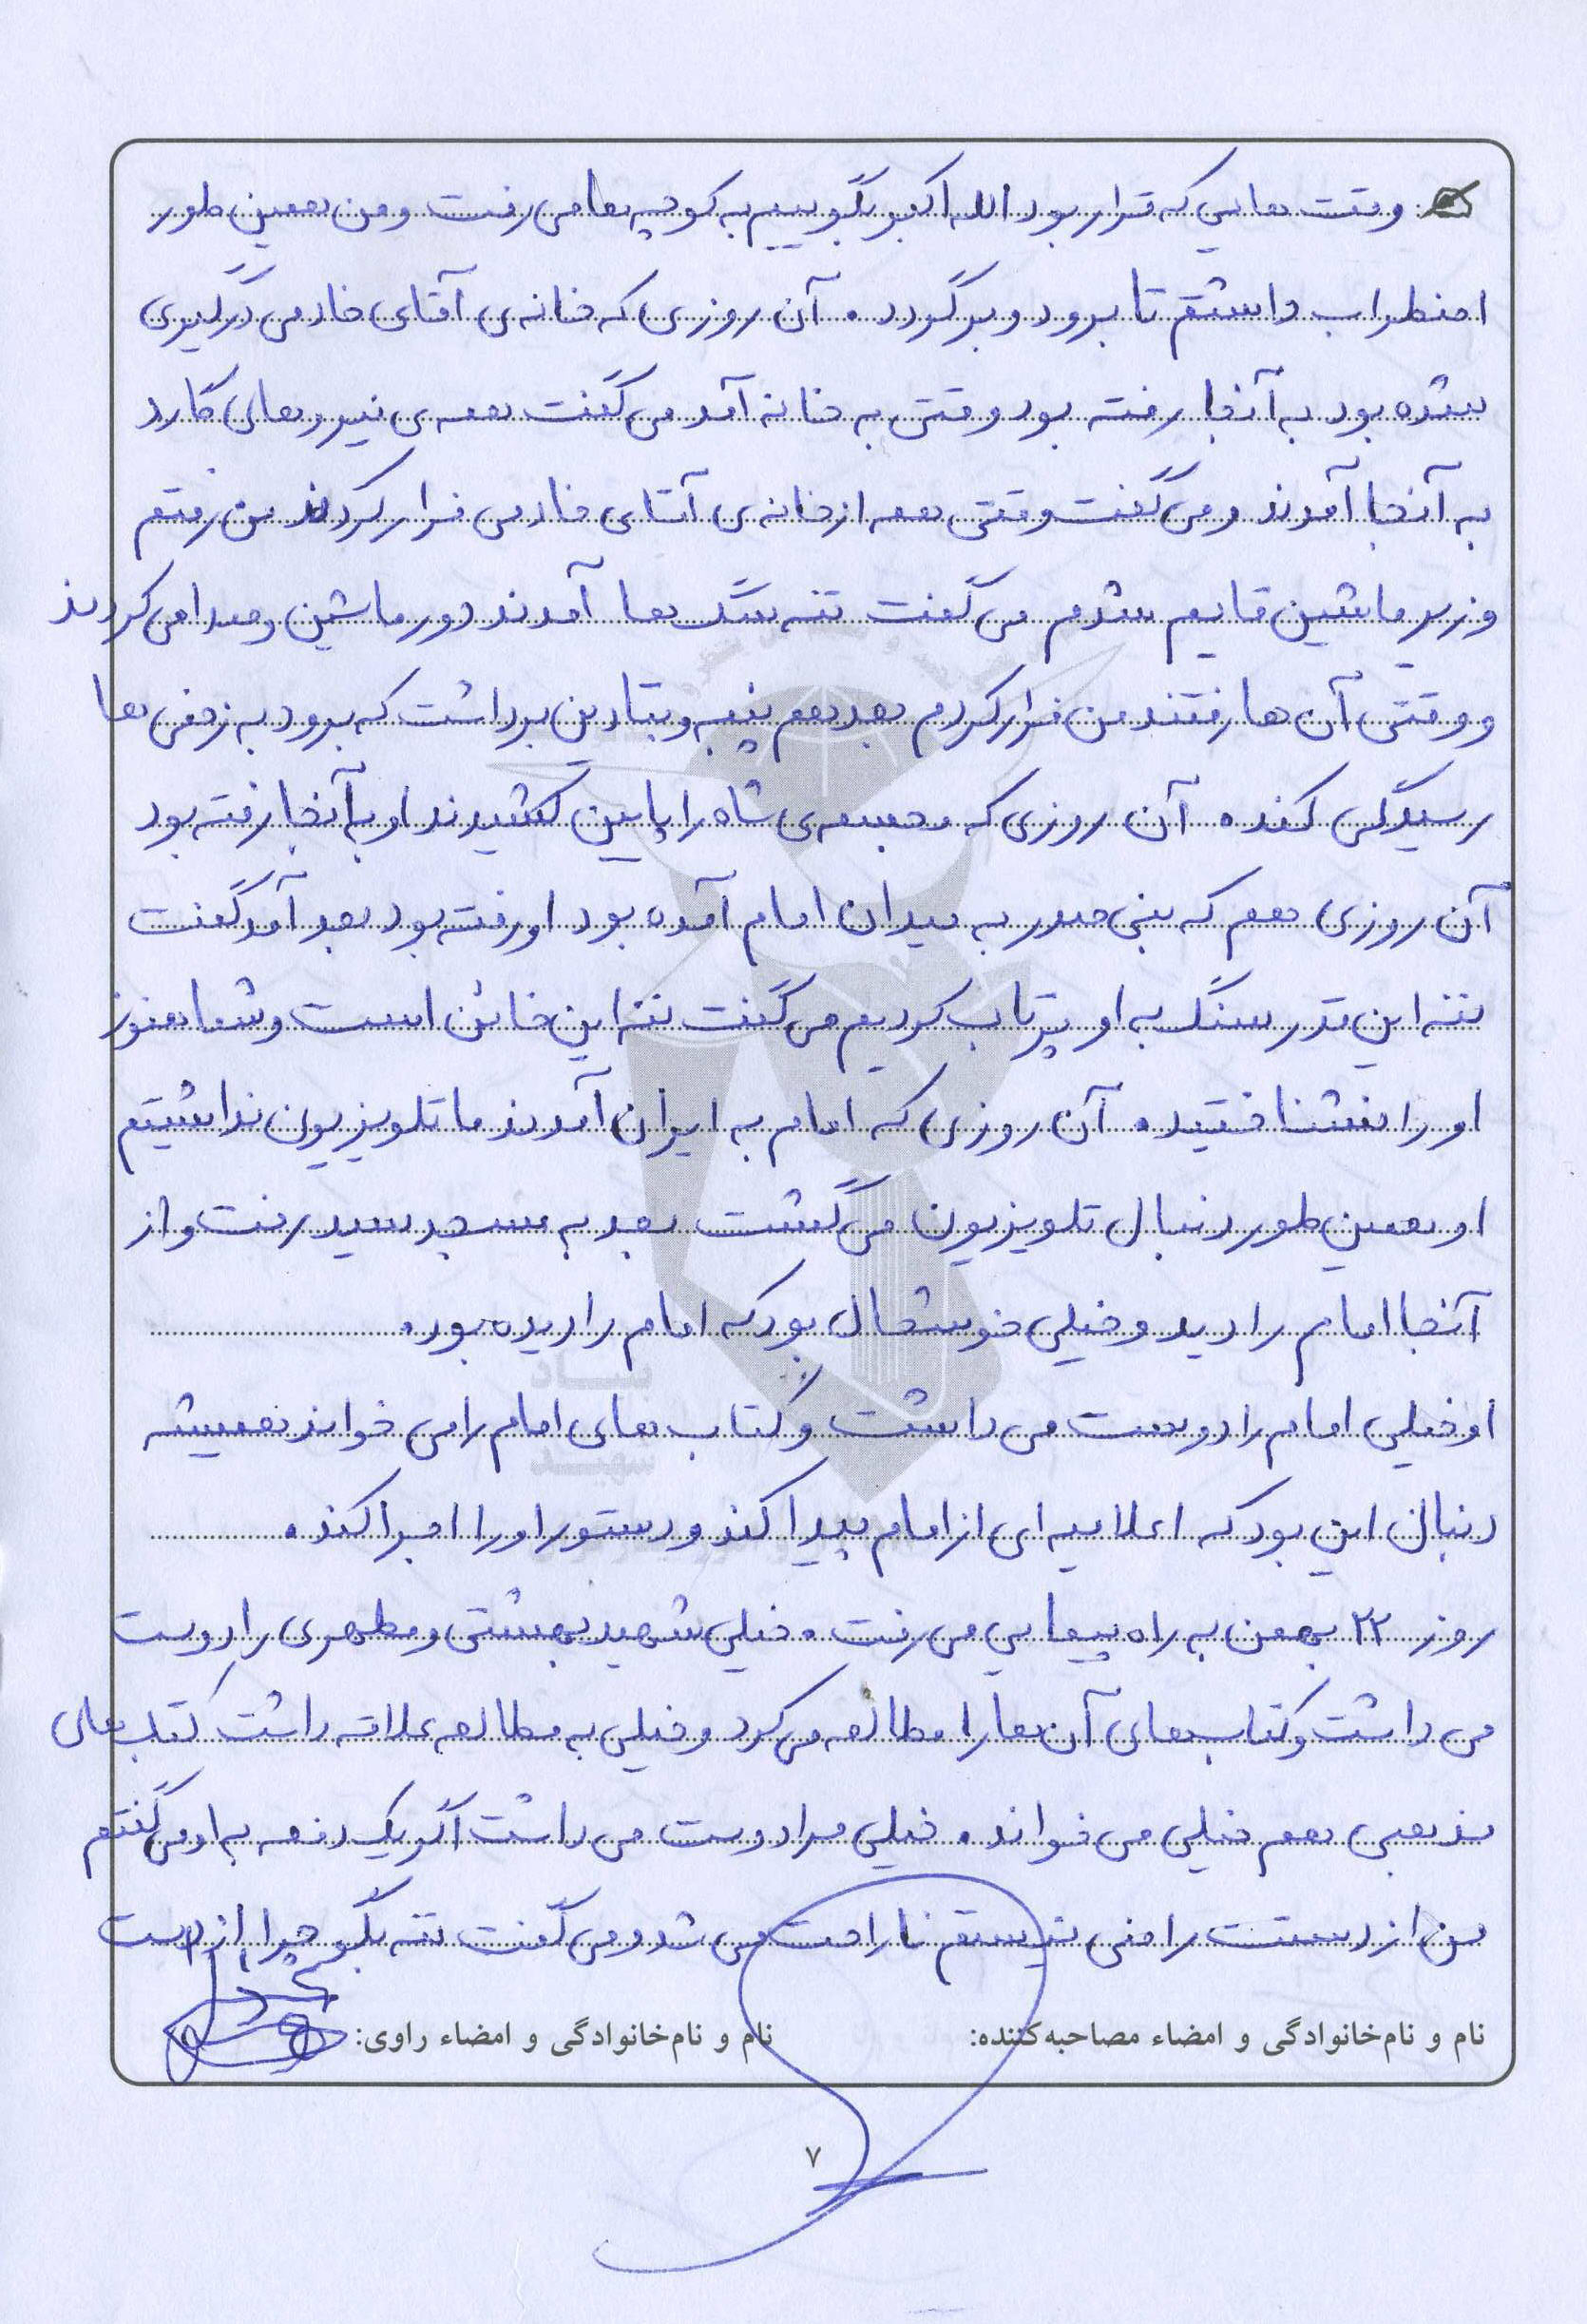 وقت هایی که قرار بود الله اکبر بگوییم به کوچه ها می رفت و من همین طور
اضطراب داشتم تا برود و برگردد. آن روزی که خانه ی آقای خادمی درگیری
شده بود به آنجا رفته بود وقتی به خانه آمد می گفت همه ی نیروهای گارد
به آنجا آمدند و می گفت وقتی همه از خانه ی آقای خادمی فرار کردند من رفتم
و زیر ماشین قایم شدم می گفت ننه سگ ها آمدند دور ماشین و صدا می کردند
و وقتی آن ها رفتند من فرار کردم بعد هم پنبه و بتادین برداشت که برود به زخمی ها
رسیدگی کند. آن روزی که مجسمه ی شاه را پایین کشیدند او به آنجا رفته بود
آن روزی هم که بنی صدر به میدان امام آمده بود او رفته بود بعد آمد گفت
ننه این قدر سنگ به او پرتاب کردیم می گفت ننه این خائن است و شما هنوز
او را نشناختید. آن روزی که امام به ایران آمدند ما تلویزیون نداشتیم
او همین طور دنبال تلویزیون می گشت بعد به مسجد سید رفت و از
آنجا امام را دید و خیلی خوشحال بود که امام را دیده بود.
او خیلی امام را دوست می داشت و کتاب های امام را می خواند همیشه
دنبال این بود که اعلامیه ای از امام پیدا کند و دستور او را اجرا کند.
روز ۲۲ بهمن به راه پیمایی می رفت. خیلی شهید بهشتی و مطهری را دوست
می داشت و کتاب های آن ها را مطالعه می کرد و خیلی به مطالعه علاقه داشت کتاب های
مذهبی هم خیلی می خواند. خیلی مرا دوست می داشت اگر یک دفعه به او می گفتم
من از دستت راضی نیستم ناراحت می شد و می گفت ننه بگو چرا از دست
نام و نام‌خانوادگی و امضاء مصاحبه‌کننده: نام و نام‌خانوادگی و امضاء راوی:
۷